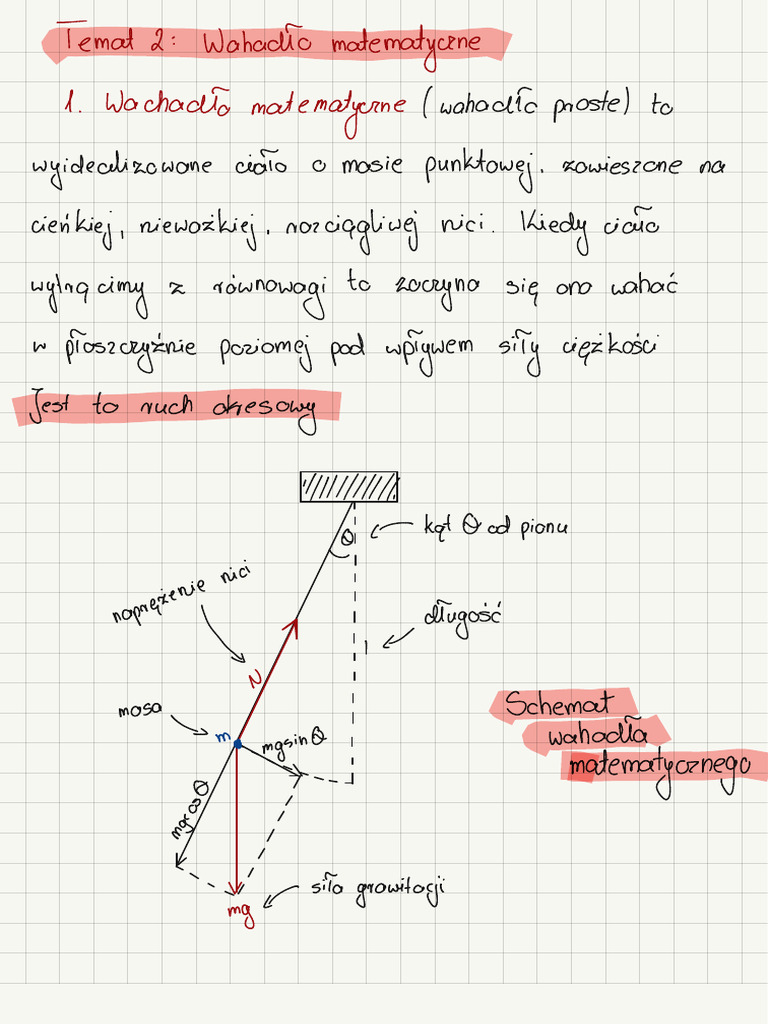 Temat 2: Wahadło matematyczne
1. Wachadło matematyczne (wahadło proste) to
wyidealizowane ciało o masie punktowej, zawieszone na
cieńkiej, nieważkiej, rozciągliwej nici. Kiedy ciało
wytrącimy z równowagi to zaczyna się ono wahać
w płaszczyźnie poziomej pod wpływem siły ciężkości
Jest to ruch okresowy
θ
kąt θ od pionu
naprężenie nici
długość
l
N
masa
m
mgsinθ
mgcosθ
Schemat
wahadła
matematycznego
siła grawitacji
mg